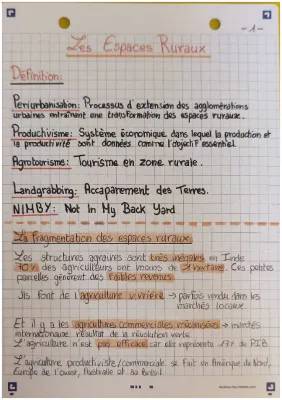 - 1 -
Les Espaces Ruraux
Définition:
Periurbanisation: Processus d'extension des agglomérations
urbaines entraînant une transformation des espaces ruraux.
Productivisme: Système économique dans lequel la production et
la productivité sont données comme l'objectif essentiel.
Agrotourisme: Tourisme en zone rurale.
Landgrabbing: Accaparement des Terres.
NIMBY: Not In My Back Yard
La fragmentation des espaces ruraux
Les structures agraires sont très inégales en Inde
70% des agriculteurs ont moins de hectare. Ces petites
parcelles génèrent des faibles revenus.
Ils font de l'agriculture vivrière → parfois vendu dans les
marchés locaux.
Et il y a les agricultures commerciales mécanisées → marchés
internationaux, résultat de la révolution verte.
L'agriculture n'est pas efficace car elle représente 17% du PIB.
L'agriculture productiviste/commerciale se fait en Amérique du Nord,
Europe de l'ouest, Australie et au Brésil.